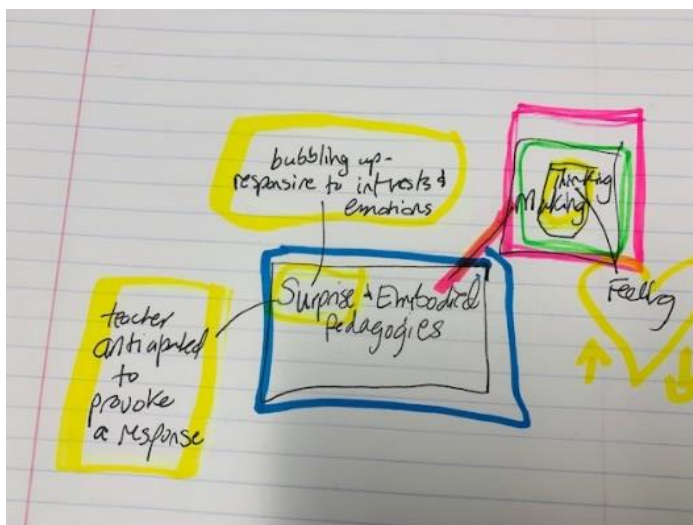 bubbling up-
responsive to intrests &
emotions
Thinking
Making
Feeling
Surprise & Embodied
Pedagogies
teacher
anticipated
to
provoke
a response